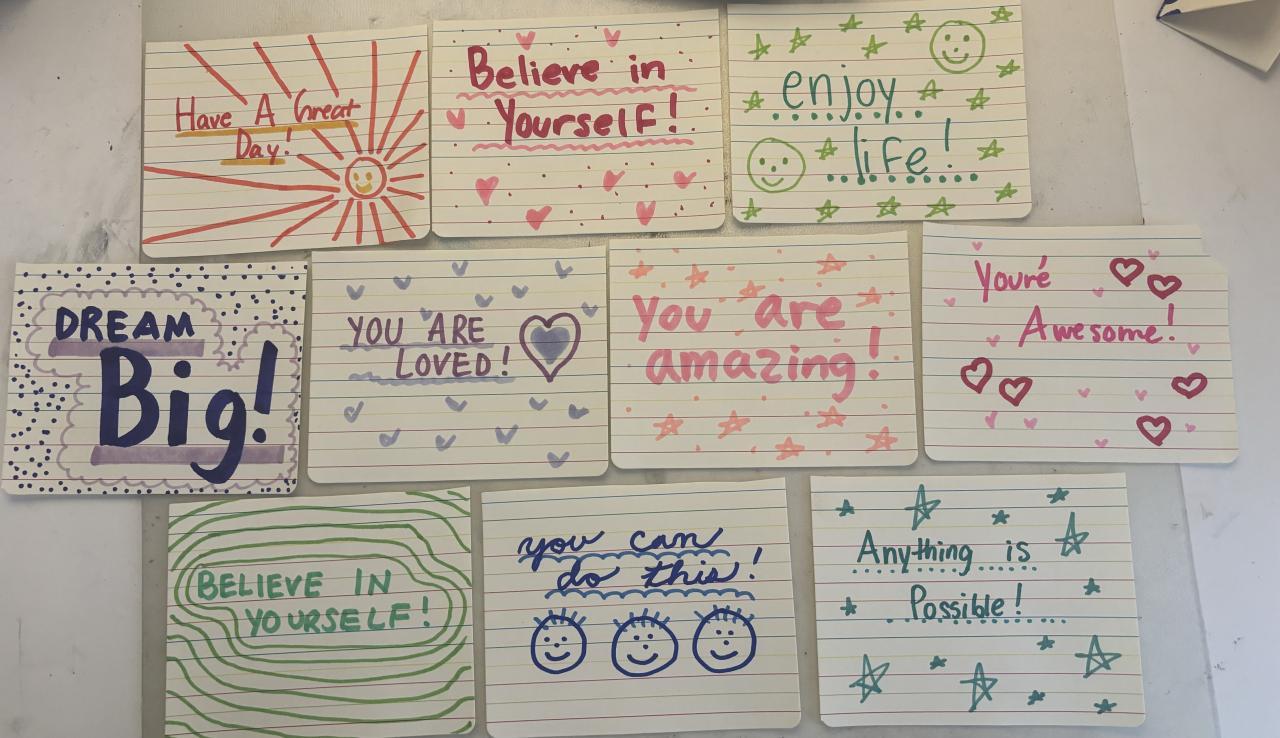 Have A Great
Day!
Believe in
Yourself!
enjoy
life!
DREAM
Big!
YOU ARE
LOVED!
You are
amazing!
Youré
Awesome!
BELIEVE IN
YOURSELF!
you can
do this!
Anything is
Possible!